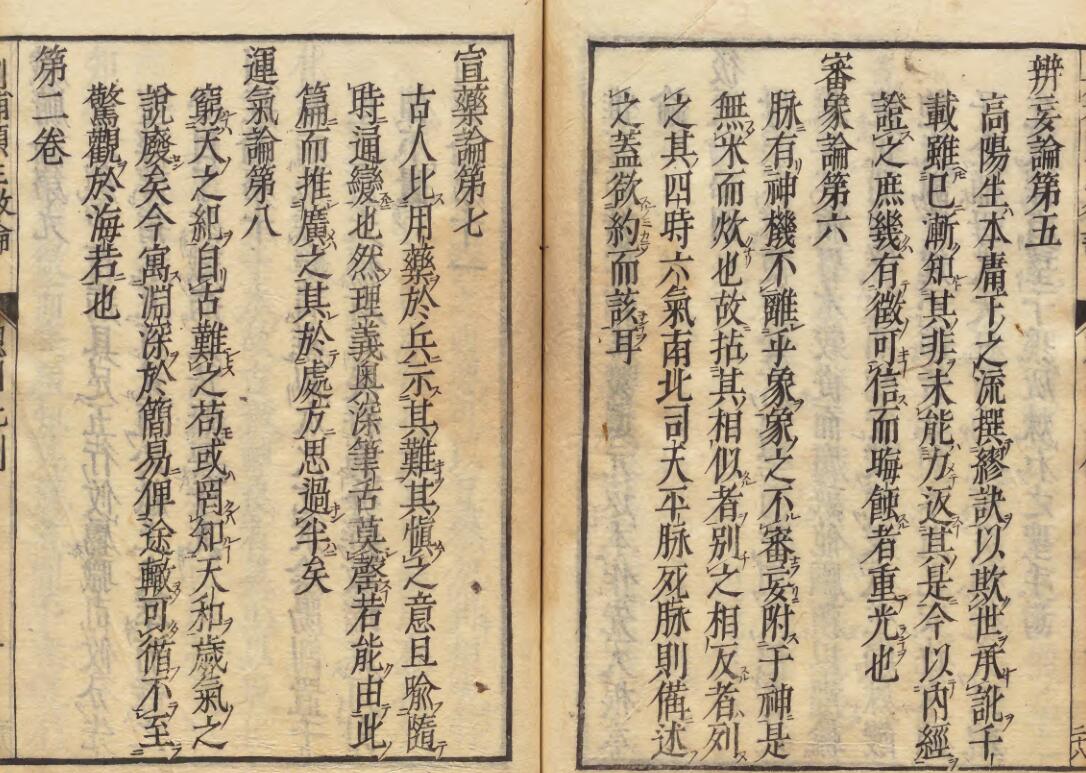 辨妄論第五
高陽生本庸下之流撰繆訣以欺世承訛千
載雖已漸知其非未能力返其是今以內經
證之庶幾有徵可信而晦蝕者重光也
審象論第六
脉有神機不離乎象象之不審妄附于神是
無米而炊也故拈其相似者別之相反者列
之其四時六氣南北司天平脉死脉則備述
之蓋欲約而該耳
宣藥論第七
古人比用藥於兵示其難其慎之意且喻隨
時通變也然理義奥深筆舌莫罄若能由此
篇而推廣之其於處方思過半矣
運氣論第八
窮天之紀自古難之苟或罔知天和歲氣之
說廢矣今寓淵深於簡易俾途轍可循不至
驚觀於海若也
第二卷